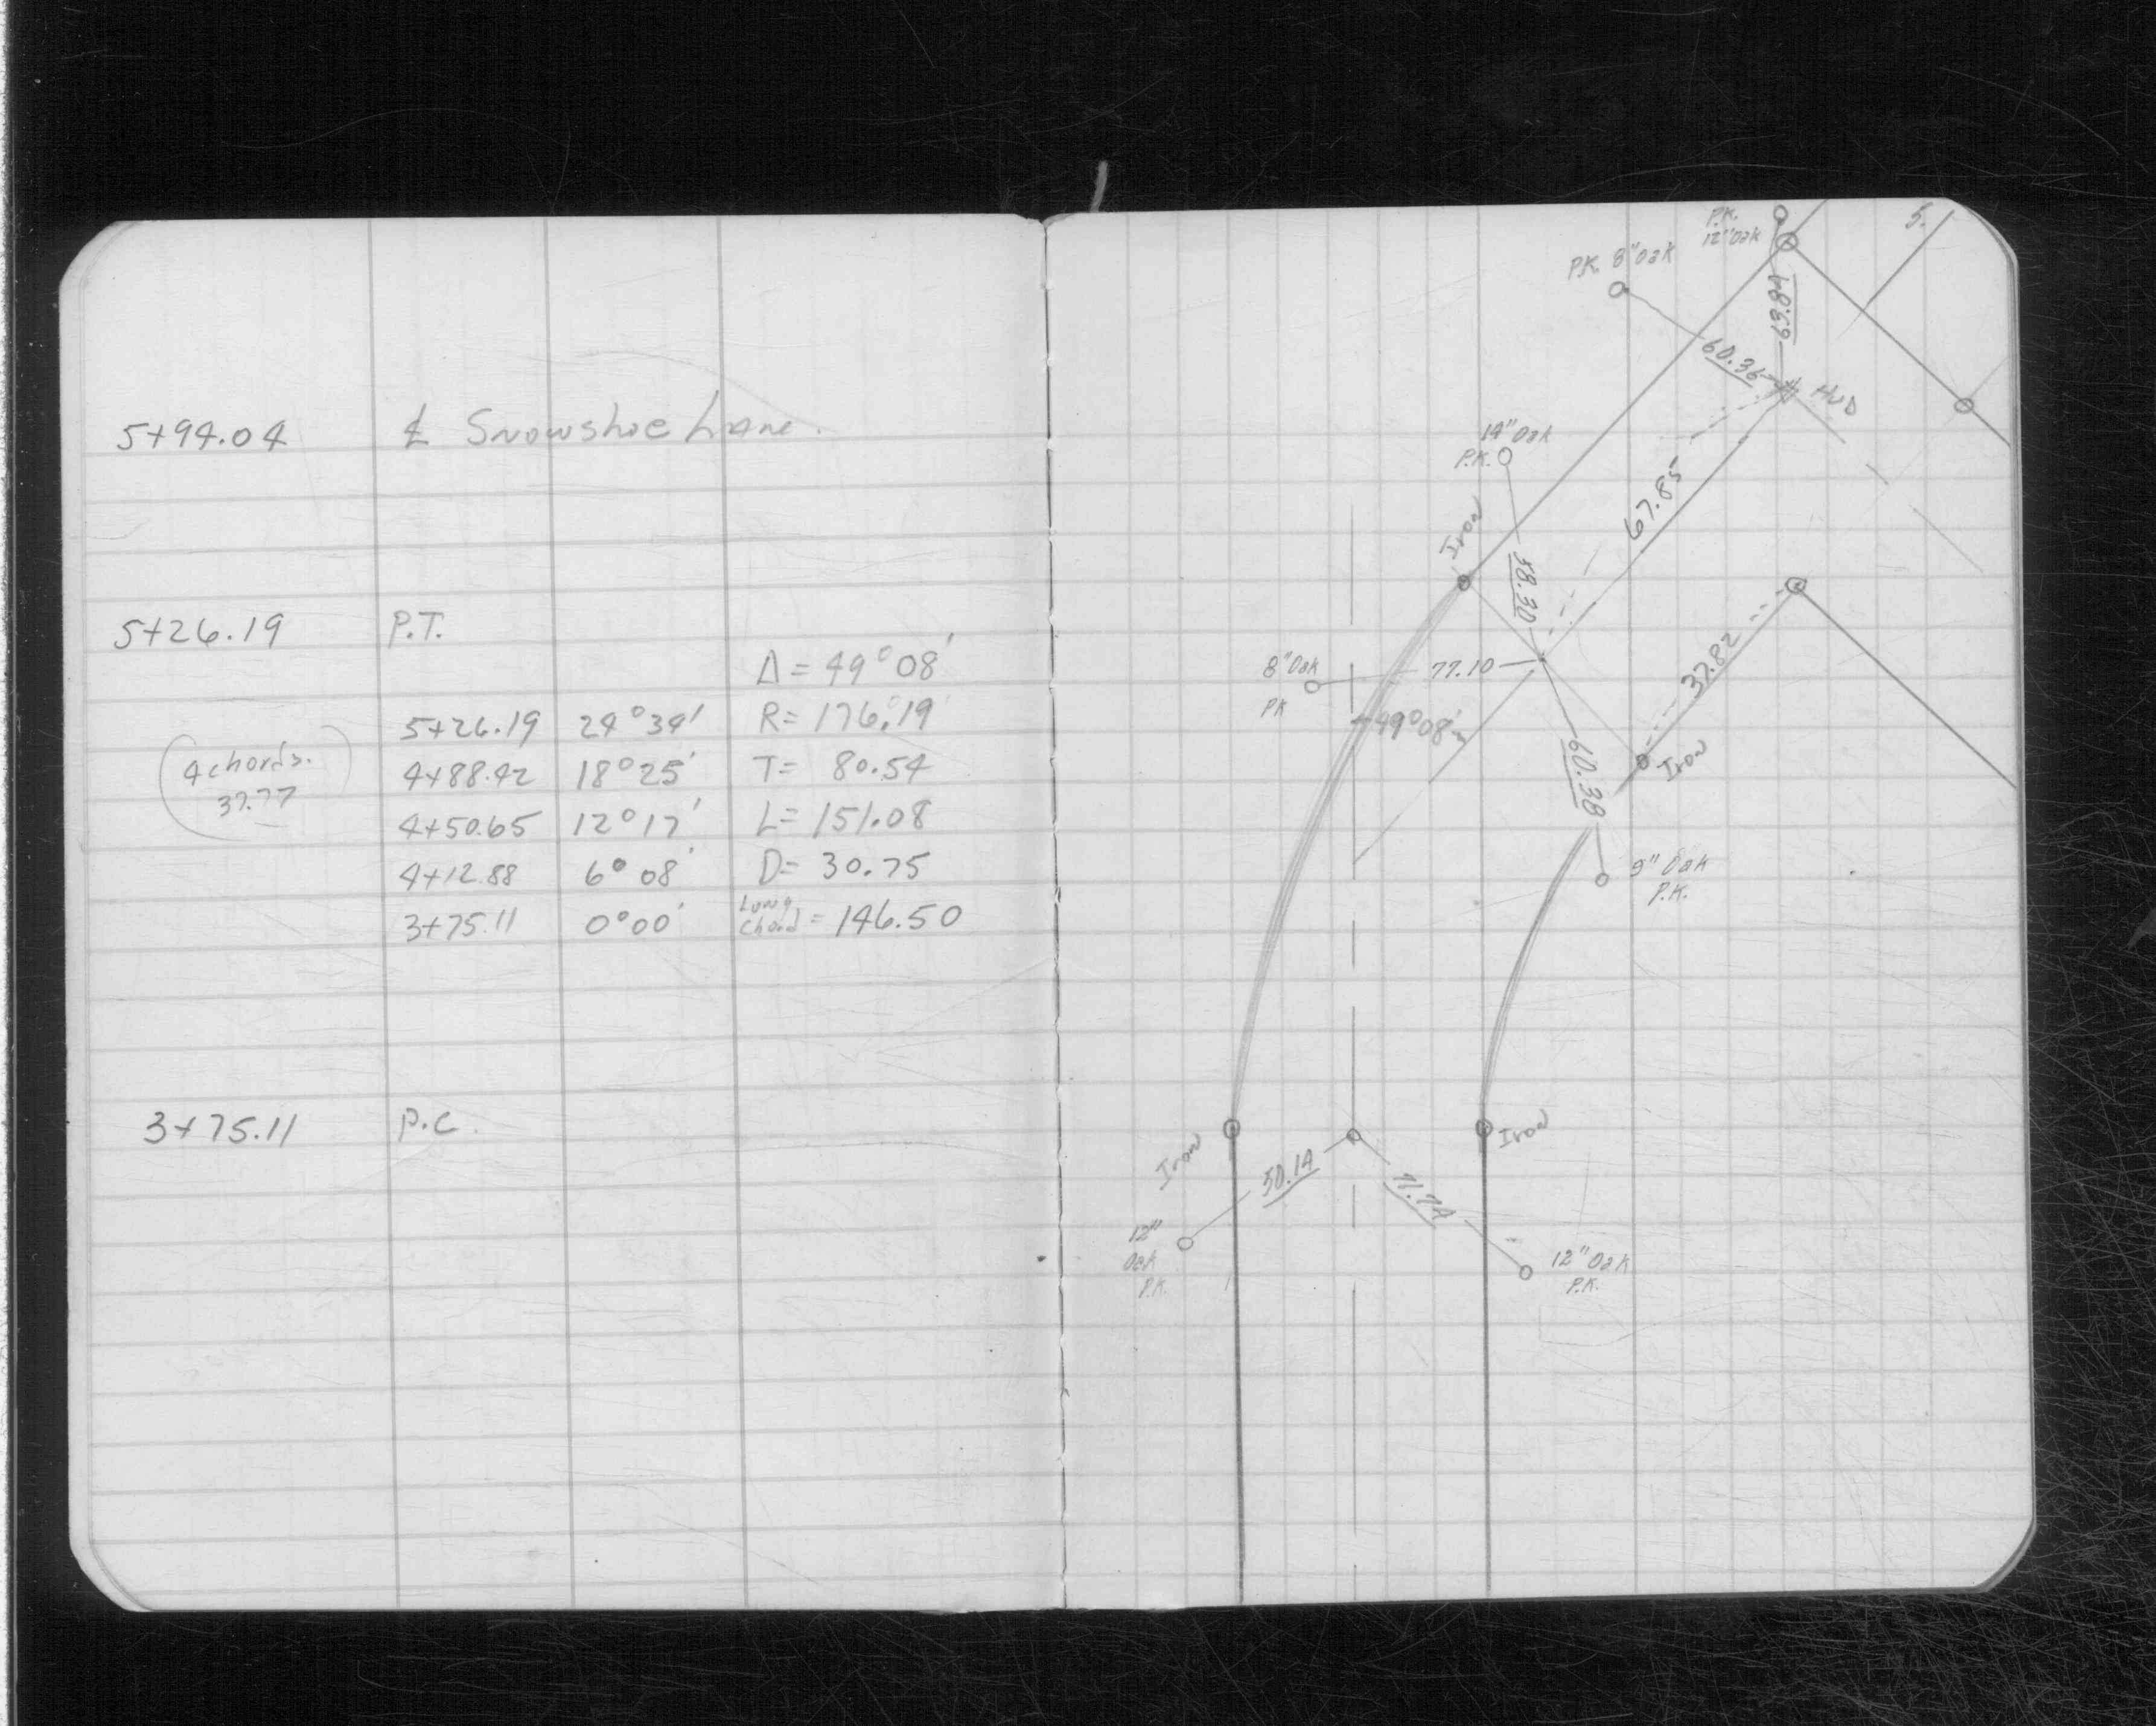 5+94.04 ℄ Snowshoe Lane.
5+26.19 P.T.
Δ = 49°08'
5+26.19 24°34' R= 176.19
(4 chords. 37.77)
4+88.42 18°25' T= 80.54
4+50.65 12°17' L= 151.08
4+12.88 6°08' D= 30.75
3+75.11 0°00' Long Chord = 146.50
3+75.11 P.C.
P.K.
12" Oak
5.
P.K. 8" Oak
63.84
60.36
HUB
14" Oak
P.K.
67.85
Iron
38.30
8" Oak
PK
77.10
37.82
49°08'
Iron
60.38
9" Oak
P.K.
Iron
50.14
71.74
Iron
12"
Oak
P.K.
12" Oak
P.K.